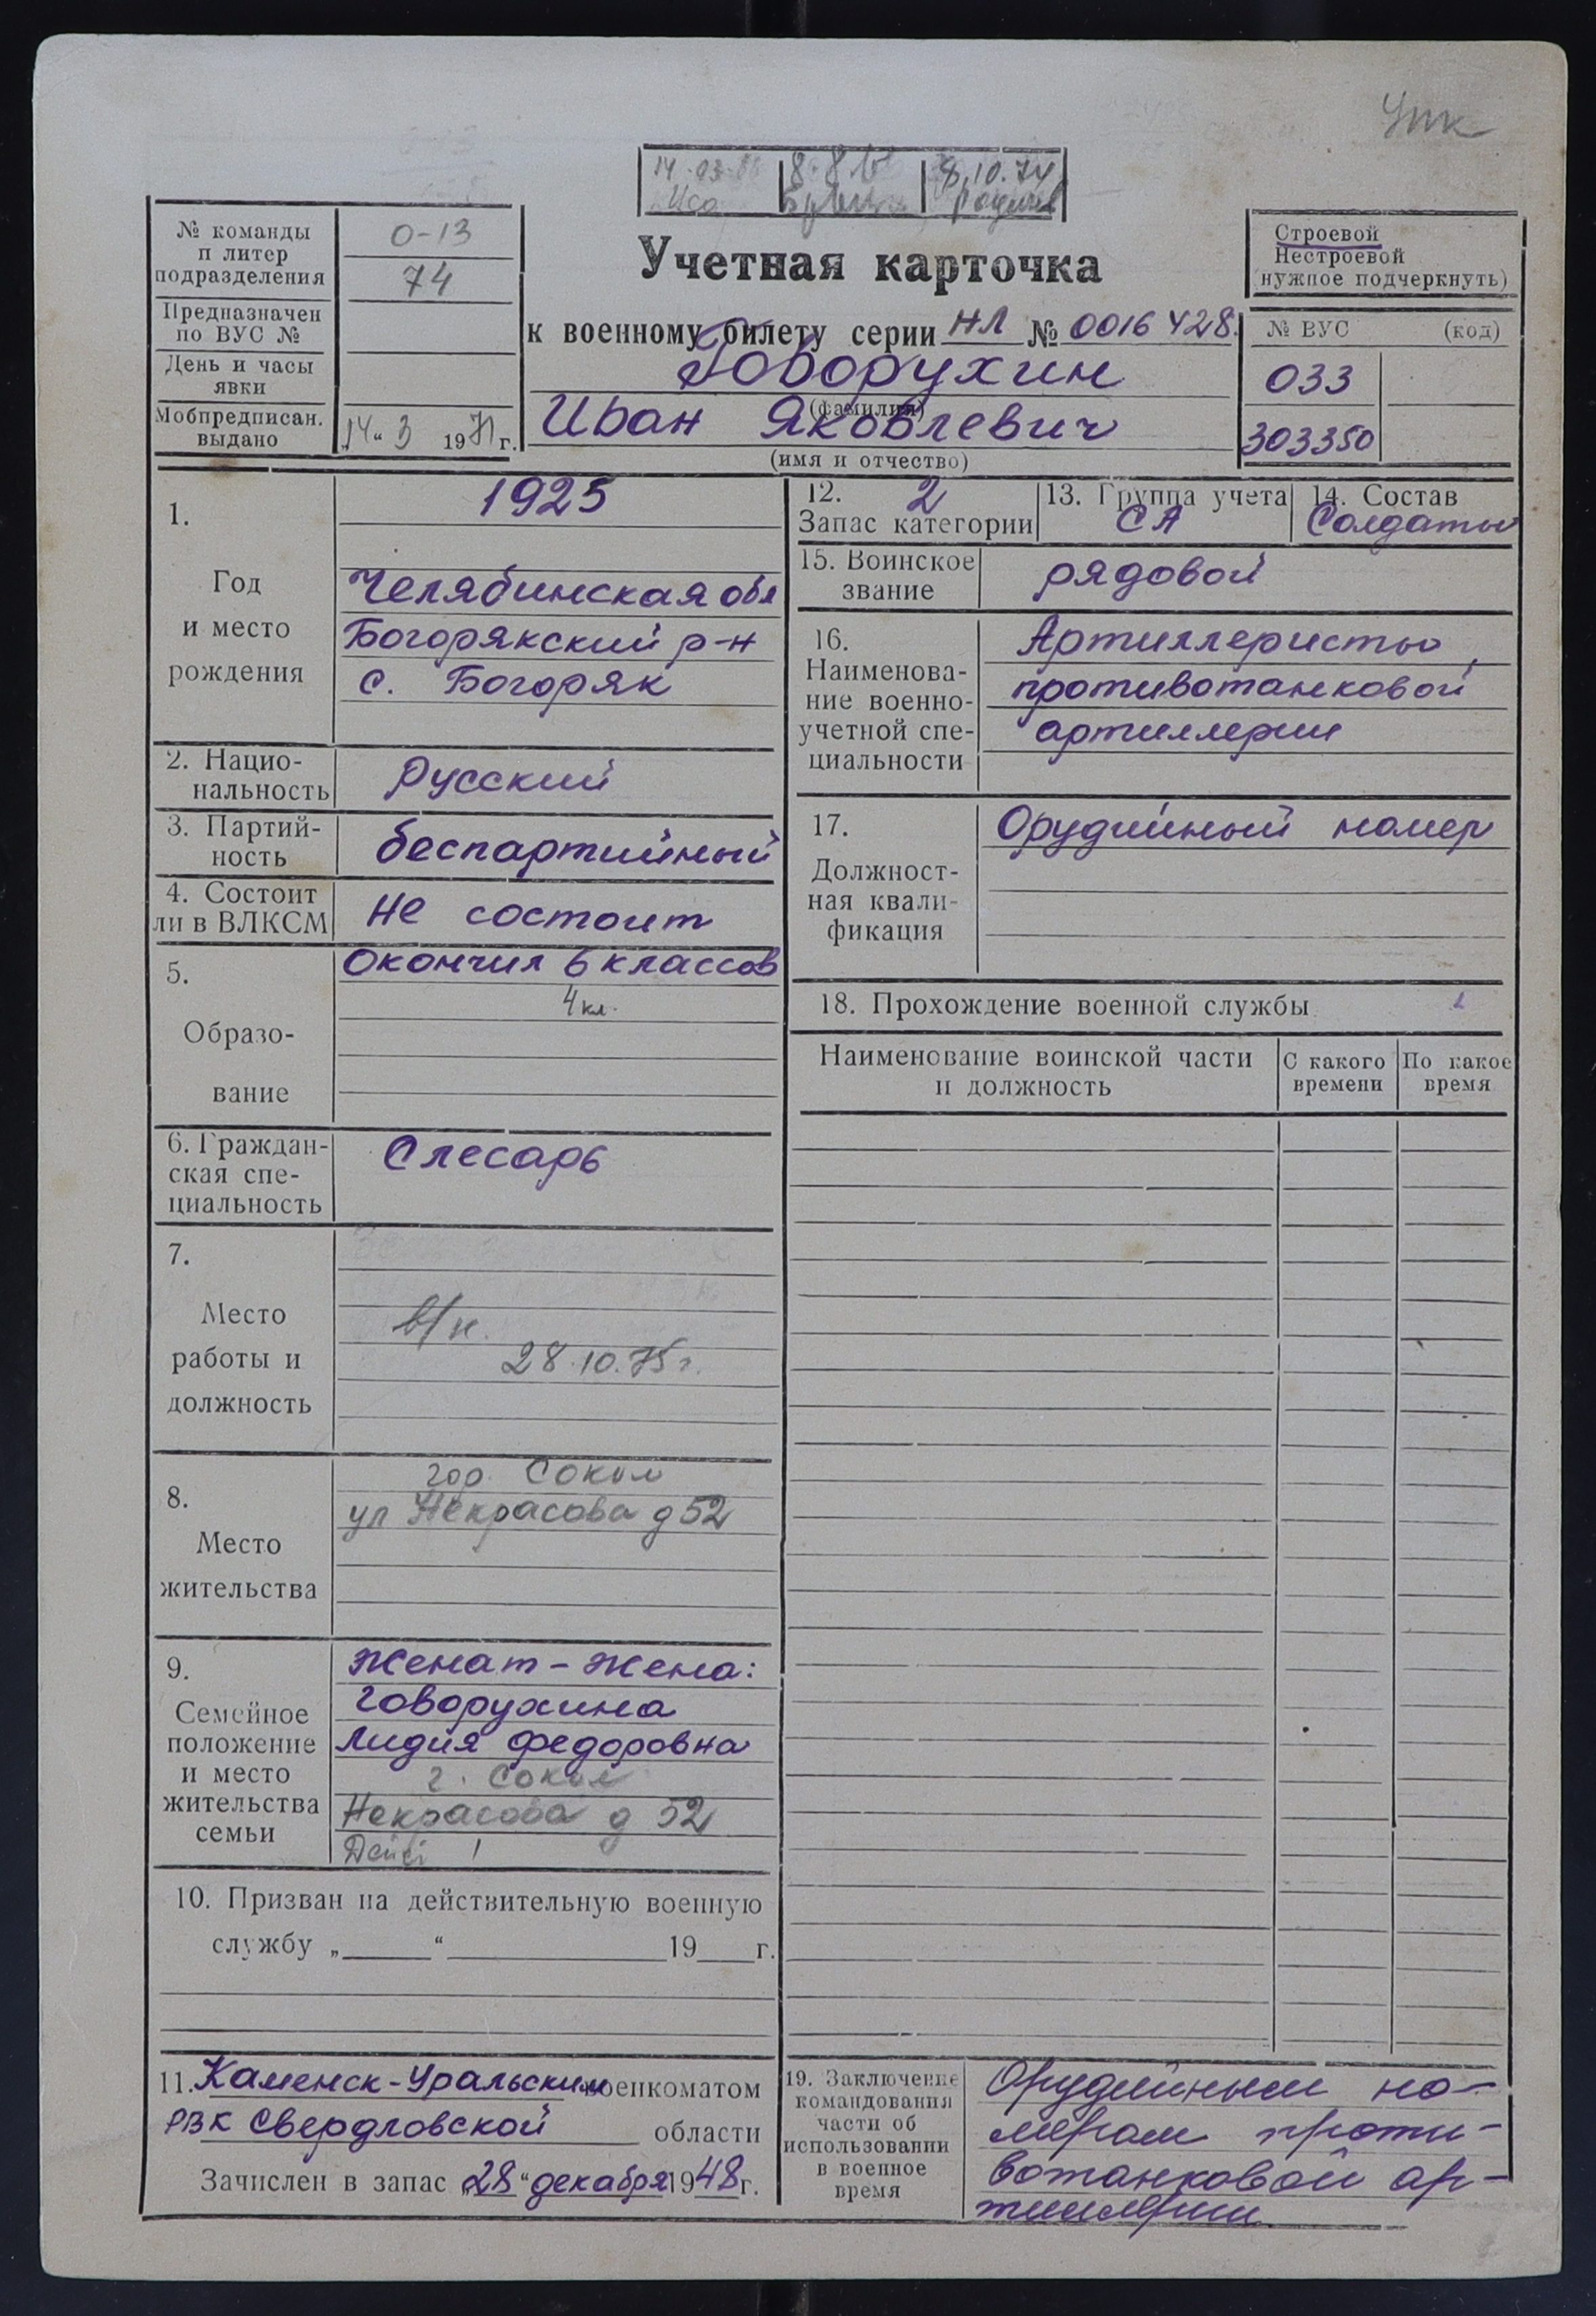 Упк
14.03.86 8.8 8.10.74
№ команды
и литер
подразделения
0-13
74
Предназначен
по ВУС №
День и часы
явки
Мобпредписан.
выдано
„14“ 3 1971 г.
Учетная карточка
к военному билету серии НЛ № 0016428.
Говорухин
(фамилия)
Иван Яковлевич
(имя и отчество)
Строевой
Нестроевой
нужное подчеркнуть)
№ ВУС (код)
033
303350
1.
Год
и место
рождения
1925
Челябинская обл
Богорякский р-н
с. Богоряк
2. Нацио-
нальность
Русский
3. Партий-
ность
беспартийный
4. Состоит
ли в ВЛКСМ
не состоит
5.
Образо-
вание
Окончил 6 классов
4 кл.
6. Граждан-
ская спе-
циальность
Слесарь
7.
Место
работы и
должность
в/н.
28.10.75 г.
8.
Место
жительства
гор. Сокол
ул Некрасова д 52
9.
Семейное
положение
и место
жительства
семьи
Женат - жена:
Говорухина
Лидия Федоровна
г. Сокол
Некрасова д 52
Дети 1
10. Призван на действительную военную
службу „ “ 19 г.
11. Каменск-Уральским военкоматом
РВК Свердловской области
Зачислен в запас „28“ декабря 1948 г.
12. 2
Запас категории
13. Группа учета
СА
14. Состав
Солдаты
15. Воинское
звание
рядовой
16.
Наименова-
ние военно-
учетной спе-
циальности
Артиллеристы
противотанковой
артиллерии
17.
Должност-
ная квали-
фикация
Орудийный номер
18. Прохождение военной службы
Наименование воинской части
и должность
С какого
времени
По какое
время
19. Заключение
командования
части об
использовании
в военное
время
Орудийным но-
мером проти-
вотанковой ар-
тиллерии